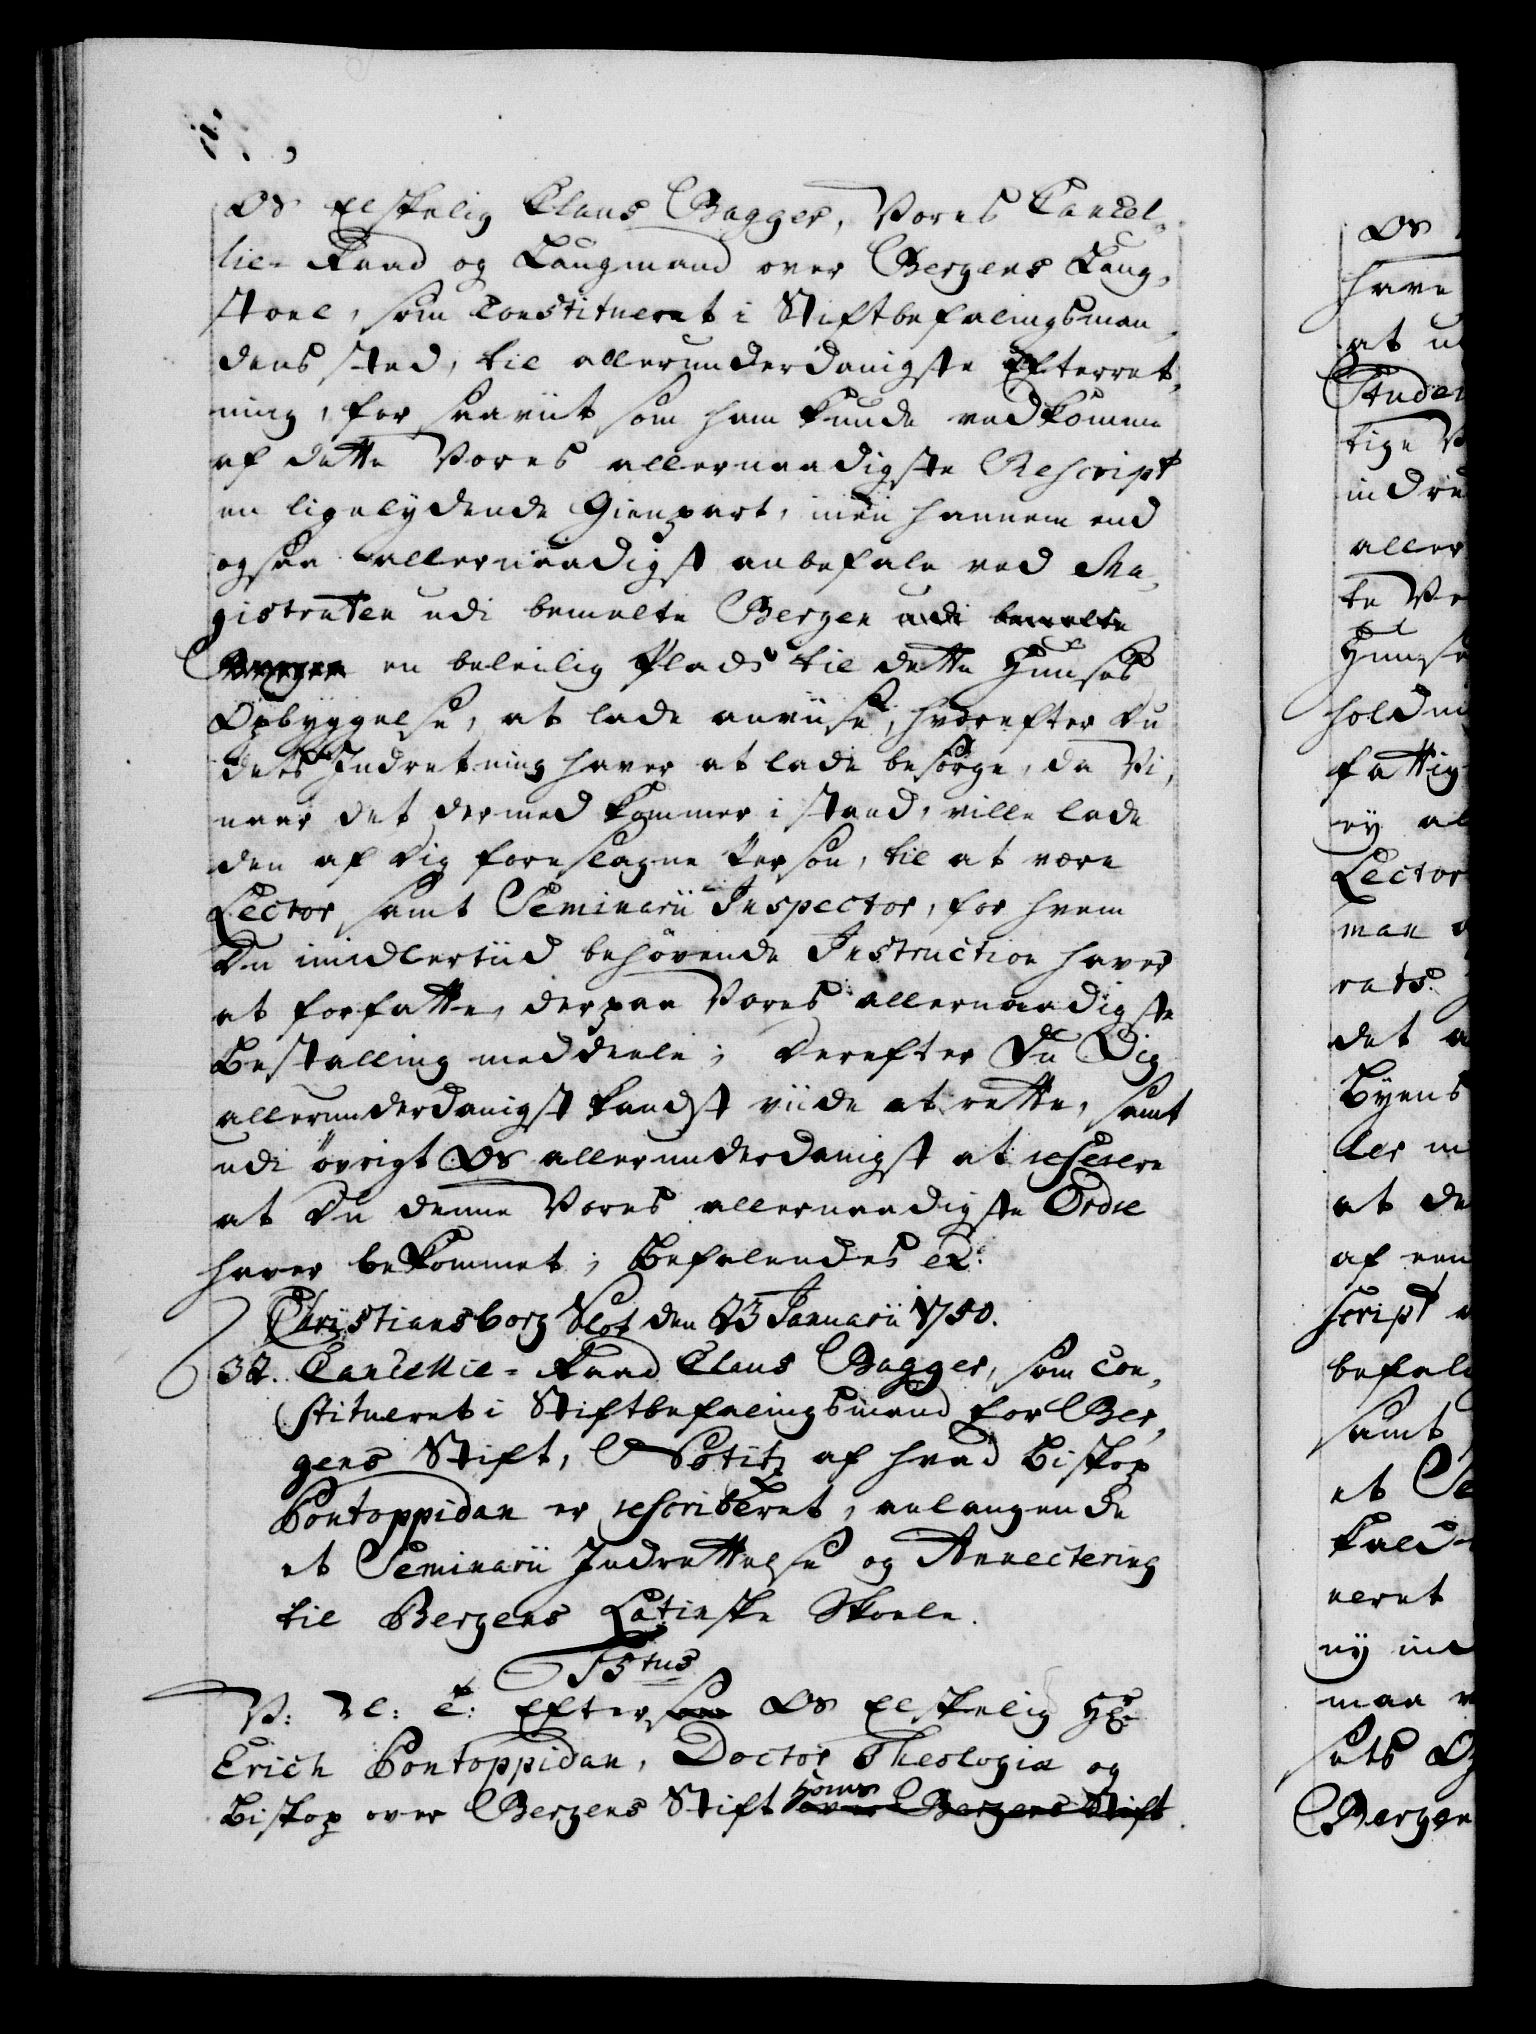 Os Elskelig Claus Bagger, Vores Cancel-
lie-Raad og Laugmand over Bergens Laug-
stoel, som Constitueret i Stiftbefalingsman-
dens sted, til allerunderdanigste Efterret-
ning, for saaviit som ham kunde vedkomme
af dette Vores allernaadigste Rescript
en ligelydende Gienpart, men hannem end
ogsaa allernaadigst anbefale ved Ma-
gistraten udi bemelte Bergen udi bemelte
Bergen en beleilig Plads til dette Huuses
Opbyggelse, at lade anviise, hvorefter Du
dets Indretning haver at lade besørge, da Vi,
naar det dermed kommer i stand, ville lade
den af Dig foreslagne Person, til at være
Lector samt Seminarii Inspector, for hvem
Du imidlertiid behøvende Instruction haver
at forfatte, derpaa Vores allernaadigste
Bestalling meddeele; Derefter Du Dig
allerunderdanigst kandst viide at rette, samt
udi øvrigt Os allerunderdanigst at referere
at Du denne Vores allernaadigste Ordre
haver bekommet; Befalendes etc:
Christiansborg Slot den 23 Januarii 1750.
32. Cancellie-Raad Claus Bagger, som Con-
stitueret i Stiftbefalingsmand for Ber-
gens Stift, Notitz af hvad Biskop
Pontoppidan er rescriberet, anlangende
et Seminarii Indrettelse og Annectering
til Bergens Latinske Skoele.
F5tus
V: Vl: t: Eftersom Os Elskelig Hr:
Erich Pontoppidan, Doctor Theologiæ og
Biskop over Bergens Stift over Bergens Stift
Os
have
at u
Studen
tige V
indre
aller
te Ve
Huuse
holdni
fattig
ey al
Lector
man
rats
det a
Byens
ler m
at de
af een
script
befale
samt
et Se
kald
neret
ny in
maa
sets O
Bergen